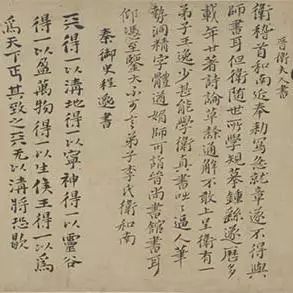 晋衛夫人書
衛稽首和南近奉勑寫急就章遂不得與
師書耳但衛隨世所學規摹鍾繇遂歷多
載年廿著詩論草隸通解不敢上呈衛有一
弟子王逸少甚能學衛真書咄〻逼人筆
勢洞精字體遒媚師可詣晉尚書館書耳
仰馮至鑒大不可言弟子李氏衛和南
秦御史程邈書
天得一以清地得一以寧神得一以靈谷
得一以盈萬物得一以生侯王得一以爲
爲天下正其致之天无以清將恐歇